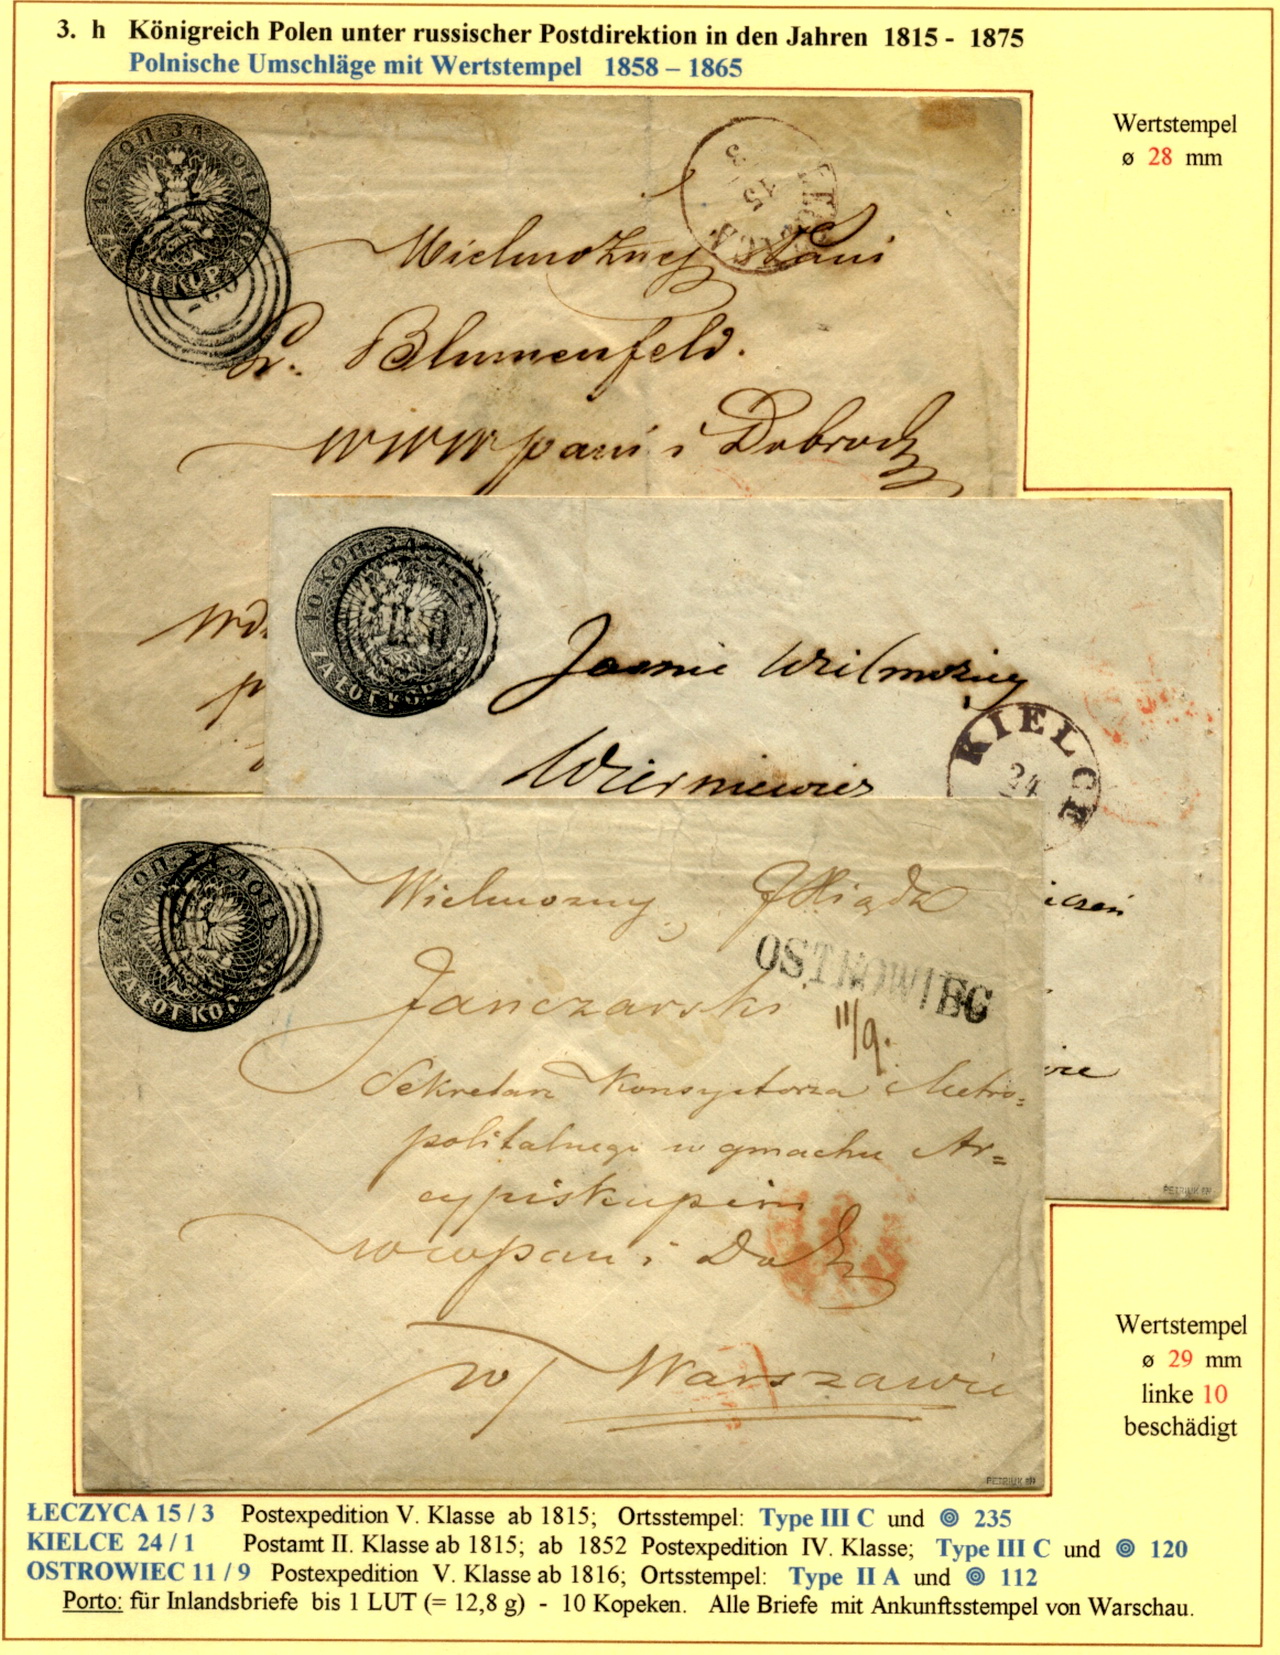 3. h Königreich Polen unter russischer Postdirektion in den Jahren 1815 - 1875
Polnische Umschläge mit Wertstempel 1858 – 1865
Wertstempel
ø 28 mm
10 КОП. ЗА ЛОТЪ
KOP.
15 3
Wielmożnej Pani
Blumenfeld.
WWWPani i Dobrodz
10 КОП. ЗА
ZA ŁOT KOP.
Jaśnie Wielmożny
KIELCE
24
10 КОП. ЗА ЛОТЪ
ZA ŁOT KOP.
Wielmożny JXiądz
OSTROWIEC
Janczarski
11/9.
Sekretarz Konsystorza Metro=
politalnego w gmachu Ar=
cypiskupim
WWPan i Dobdz
w Warszawie
PETRIUK
PETRIUK
Wertstempel
ø 29 mm
linke 10
beschädigt
ŁECZYCA 15 / 3 Postexpedition V. Klasse ab 1815; Ortsstempel: Type III C und 235
KIELCE 24 / 1 Postamt II. Klasse ab 1815; ab 1852 Postexpedition IV. Klasse; Type III C und 120
OSTROWIEC 11 / 9 Postexpedition V. Klasse ab 1816; Ortsstempel: Type II A und 112
Porto: für Inlandsbriefe bis 1 LUT (= 12,8 g) - 10 Kopeken. Alle Briefe mit Ankunftsstempel von Warschau.